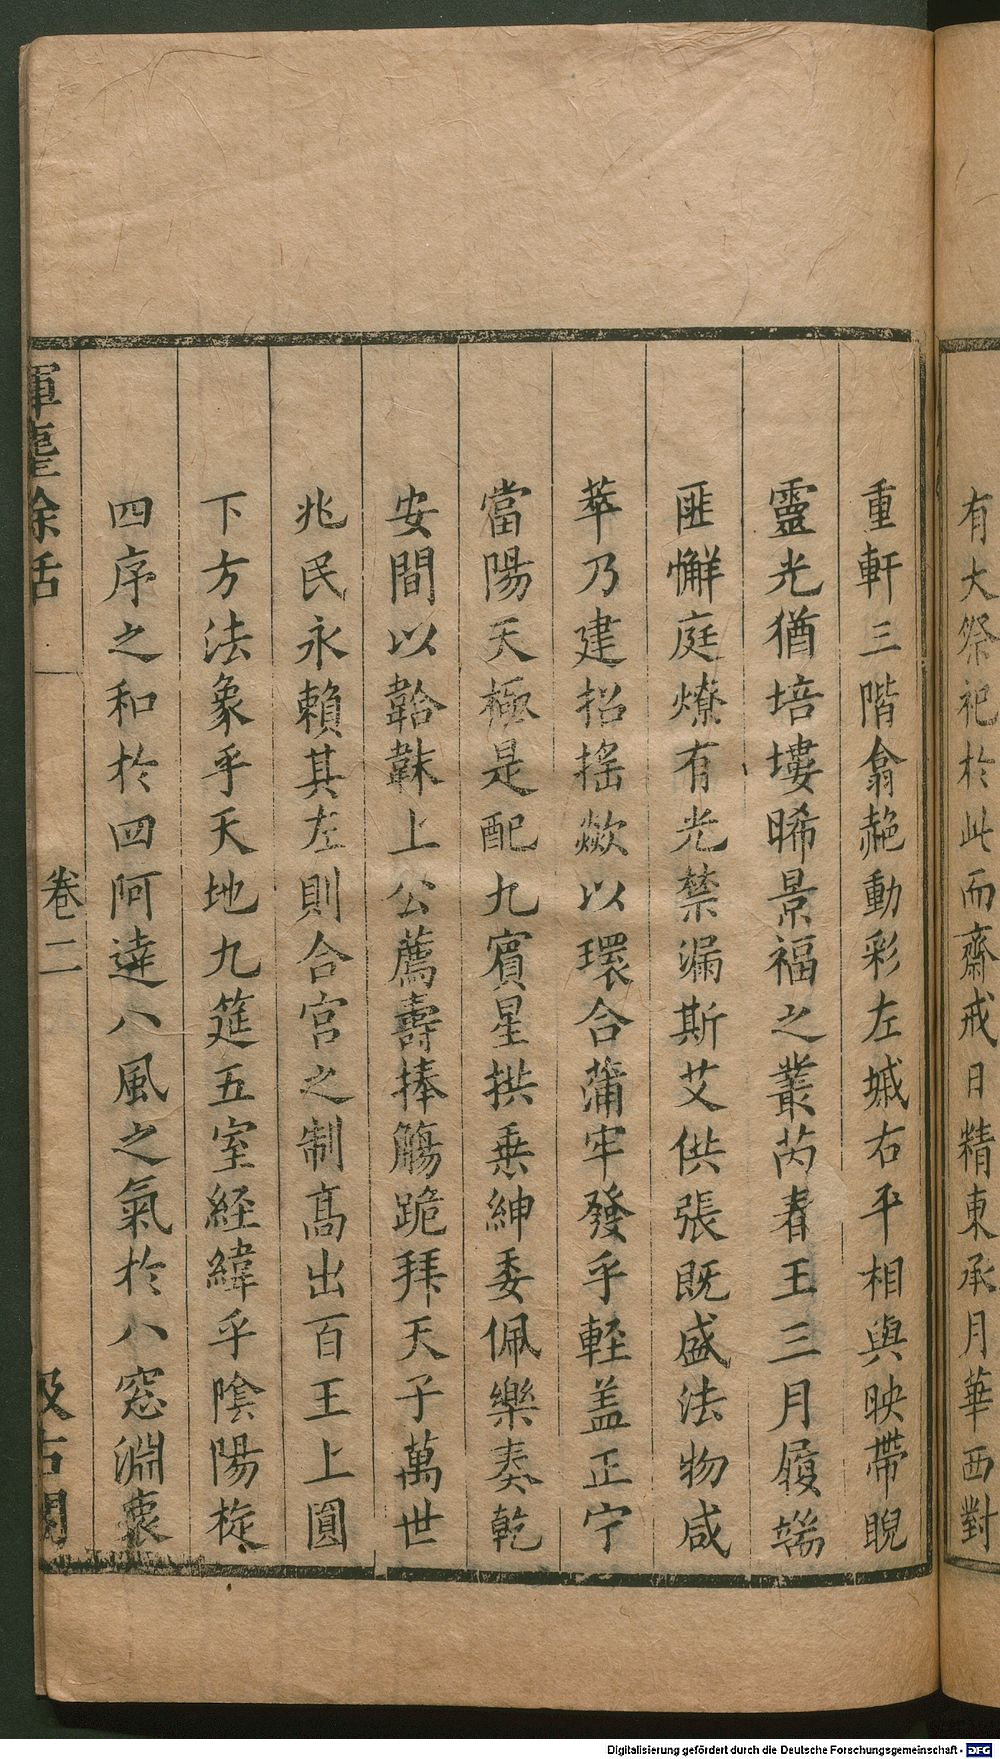 有大祭祀於此而齋戒日精東承月華西對
重軒三階翕赩動彩左墄右平相與映帶睨
靈光猶培塿晞景福之叢芮春王三月履端
匪懈庭燎有光禁漏斯艾供張既盛法物咸
萃乃建招搖歘以環合蒲牢發乎輕蓋正宁
當陽天極是配九賓星拱乗紳委佩樂奏乾
安間以韐韎上公薦壽捧觴跪拜天子萬世
兆民永賴其左則合宮之制髙出百王上圓
下方法象乎天地九筵五室経緯乎陰陽旋
四序之和於四阿達八風之氣於八窓淵衷
揮麈餘話
卷二
汲古閣
Digitalisierung gefördert durch die Deutsche Forschungsgemeinschaft - DFG